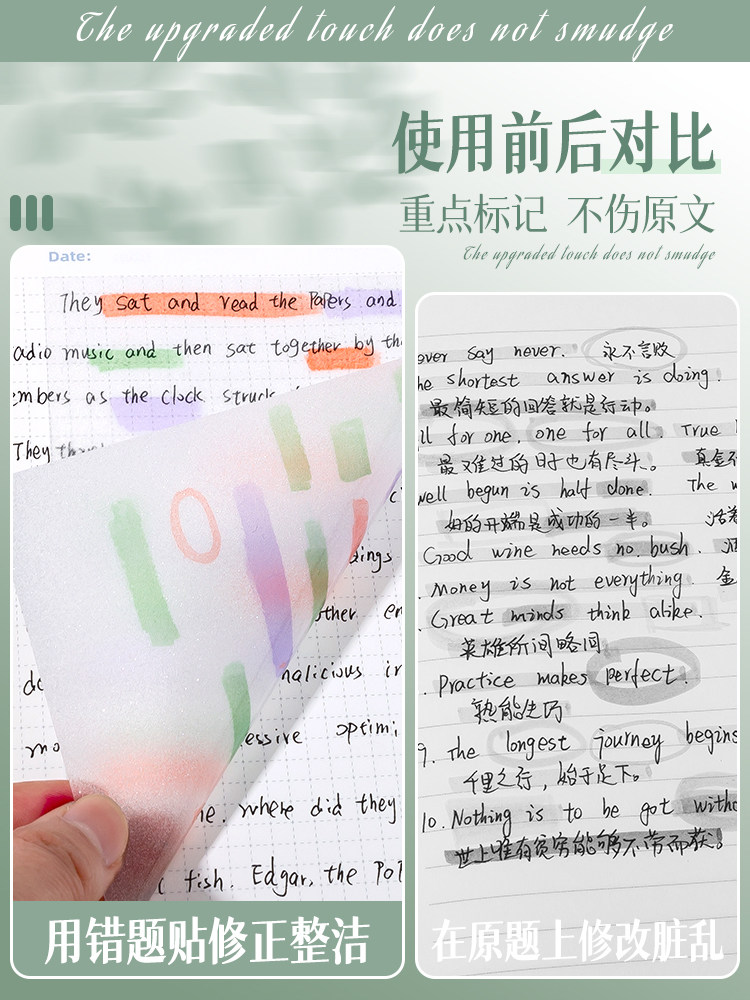 The upgraded touch does not smudge
使用前后对比
重点标记 不伤原文
The upgraded touch does not smudge
Date:
They sat and read the Papers and
adio music and then sat together by the
embers as the clock struck
They
dings
other en
malicious in
essive optimi
ne. where did they
fish. Edgar, the Po
用错题贴修正整洁
ever say never. 永不言败
he shortest answer is doing.
最简短的回答就是行动。
ll for one, one for all. True
最难过的日子也有尽头。 真金不
well begun is half done. The w
好的开端是成功的一半。 活着
Good wine needs no bush. 酒
Money is not everything. 金
Great minds think alike.
英雄所间略同
Practice makes perfect.
熟能生巧
9. The longest journey begins
千里之行，始于足下。
10. Nothing is to be got witho
世上唯有贫穷能够不劳而获。
在原题上修改脏乱